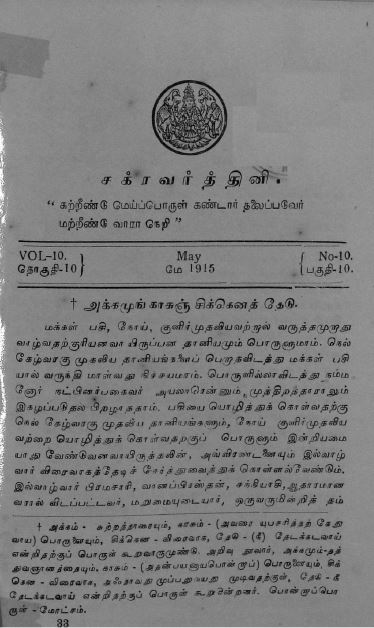 சக்ரவர்த்தினி.
“ கற்றீண்டு மெய்ப்பொருள் கண்டார் தலைப்படுவேர்
மற்றீண்டு வாரா நெறி ”
VOL-10. May No-10.
தொகுதி-10 மே 1915 பகுதி-10.
† அக்கமுங் காசுஞ் சிக்கெனத் தேடு.
மக்கள் பசி, நோய், குளிர்முதலியவற்றால் வருத்தமுறாது
வாழ்வதற்குரியனவா யிருப்பன தானியமும் பொருளுமாம். நெல்
கேழ்வரகு முதலிய தானியங்களைப் பெறாதவிடத்து மக்கள் பசி
யால் வருந்தி மாள்வது நிச்சயமாம். பொருளில்லாவிடத்து நம்ம
னோர் நட்பினர்பகைவர் அயலாரென்னும் முத்திறத்தாராலும்
இகழப்படுதல் பிறழாததாம். பசியை யொழித்துக் கொள்வதற்கு
நெல் கேழ்வரகு முதலிய தானியங்களும், நோய் குளிர்முதலிய
வற்றை யொழித்துக் கொள்வதற்குப் பொருளும் இன்றியமை
யாது வேண்டுவனவாயிருத்தலின், அவ்விரண்டனையும் இல்வாழ்
வார் விரைவாகத்தேடிச் சேர்த்துவைத்துக் கொள்ளல்வேண்டும்.
இல்வாழ்வார் பிரமசாரி, வானப்பிரஸ்தன், சந்நியாசி, ஆதாரமான
வரால் விடப்பட்டவர், மறுமையுடையார், ஒருவருமின்றித் தம்
† அக்கம் - சுற்றத்தாரையும், காசும் - (அவரை யுபசரித்தற் கேது
வாய) பொருளையும், சிக்கென - விரைவாக, தேடு - (நீ) தேடக்கடவாய்
என்றிதற்குப் பொருள் கூறுவாருமுண்டு. அறிவு நூலார், அக்கமும்-தத்
துவஞானத்தையும், காசும் - (அதன்பயனாயபொன்றாப்) பொருளையும், சிக்
கென - விரைவாக, தேடு - நீ
தேடக்கடவாய் என்றிதற்குப் பொருள் கூறுகின்றனர். பொன்றாப்பொ
ருள் - மோட்சம்.
33